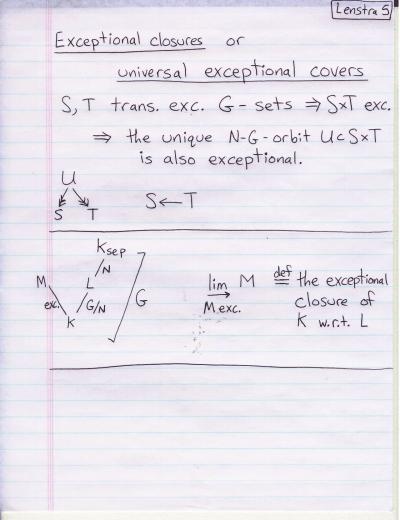 Lenstra 5
Exceptional closures or
universal exceptional covers
S, T trans. exc. G-sets ⇒ S×T exc.
⇒ the unique N-G-orbit U⊂S×T
is also exceptional.
U
S T
S ← T
K sep
N
M L
exc. G/N G
K
lim M def = the exceptional
→
M exc. closure of
K w.r.t. L